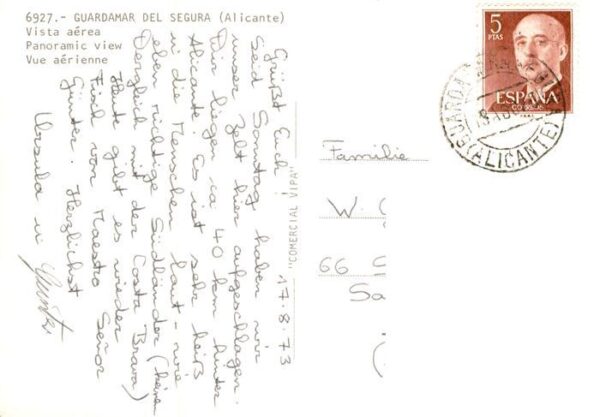 6927.- GUARDAMAR DEL SEGURA (Alicante)
Vista aérea
Panoramic view
Vue aérienne
17.8.73
Grüßt Euch!
Seid Sonntag haben wir
unser Zelt hier aufgeschlagen.
Wir liegen ca 40 km hinter
Alicante. Es ist sehr heiß
u die Menschen laut - wie
eben richtige Südländer (kein
Vergleich mit der Costa Brava)
Heute gibt es wieder
Fisch von Maestro Señor
Günter. Herzlichst
Ursula u
"COMERCIAL VIPA"
5
PTAS
ESPAÑA
CORREOS
(ALICANTE)
Familie
W.
66 S
Sa
(